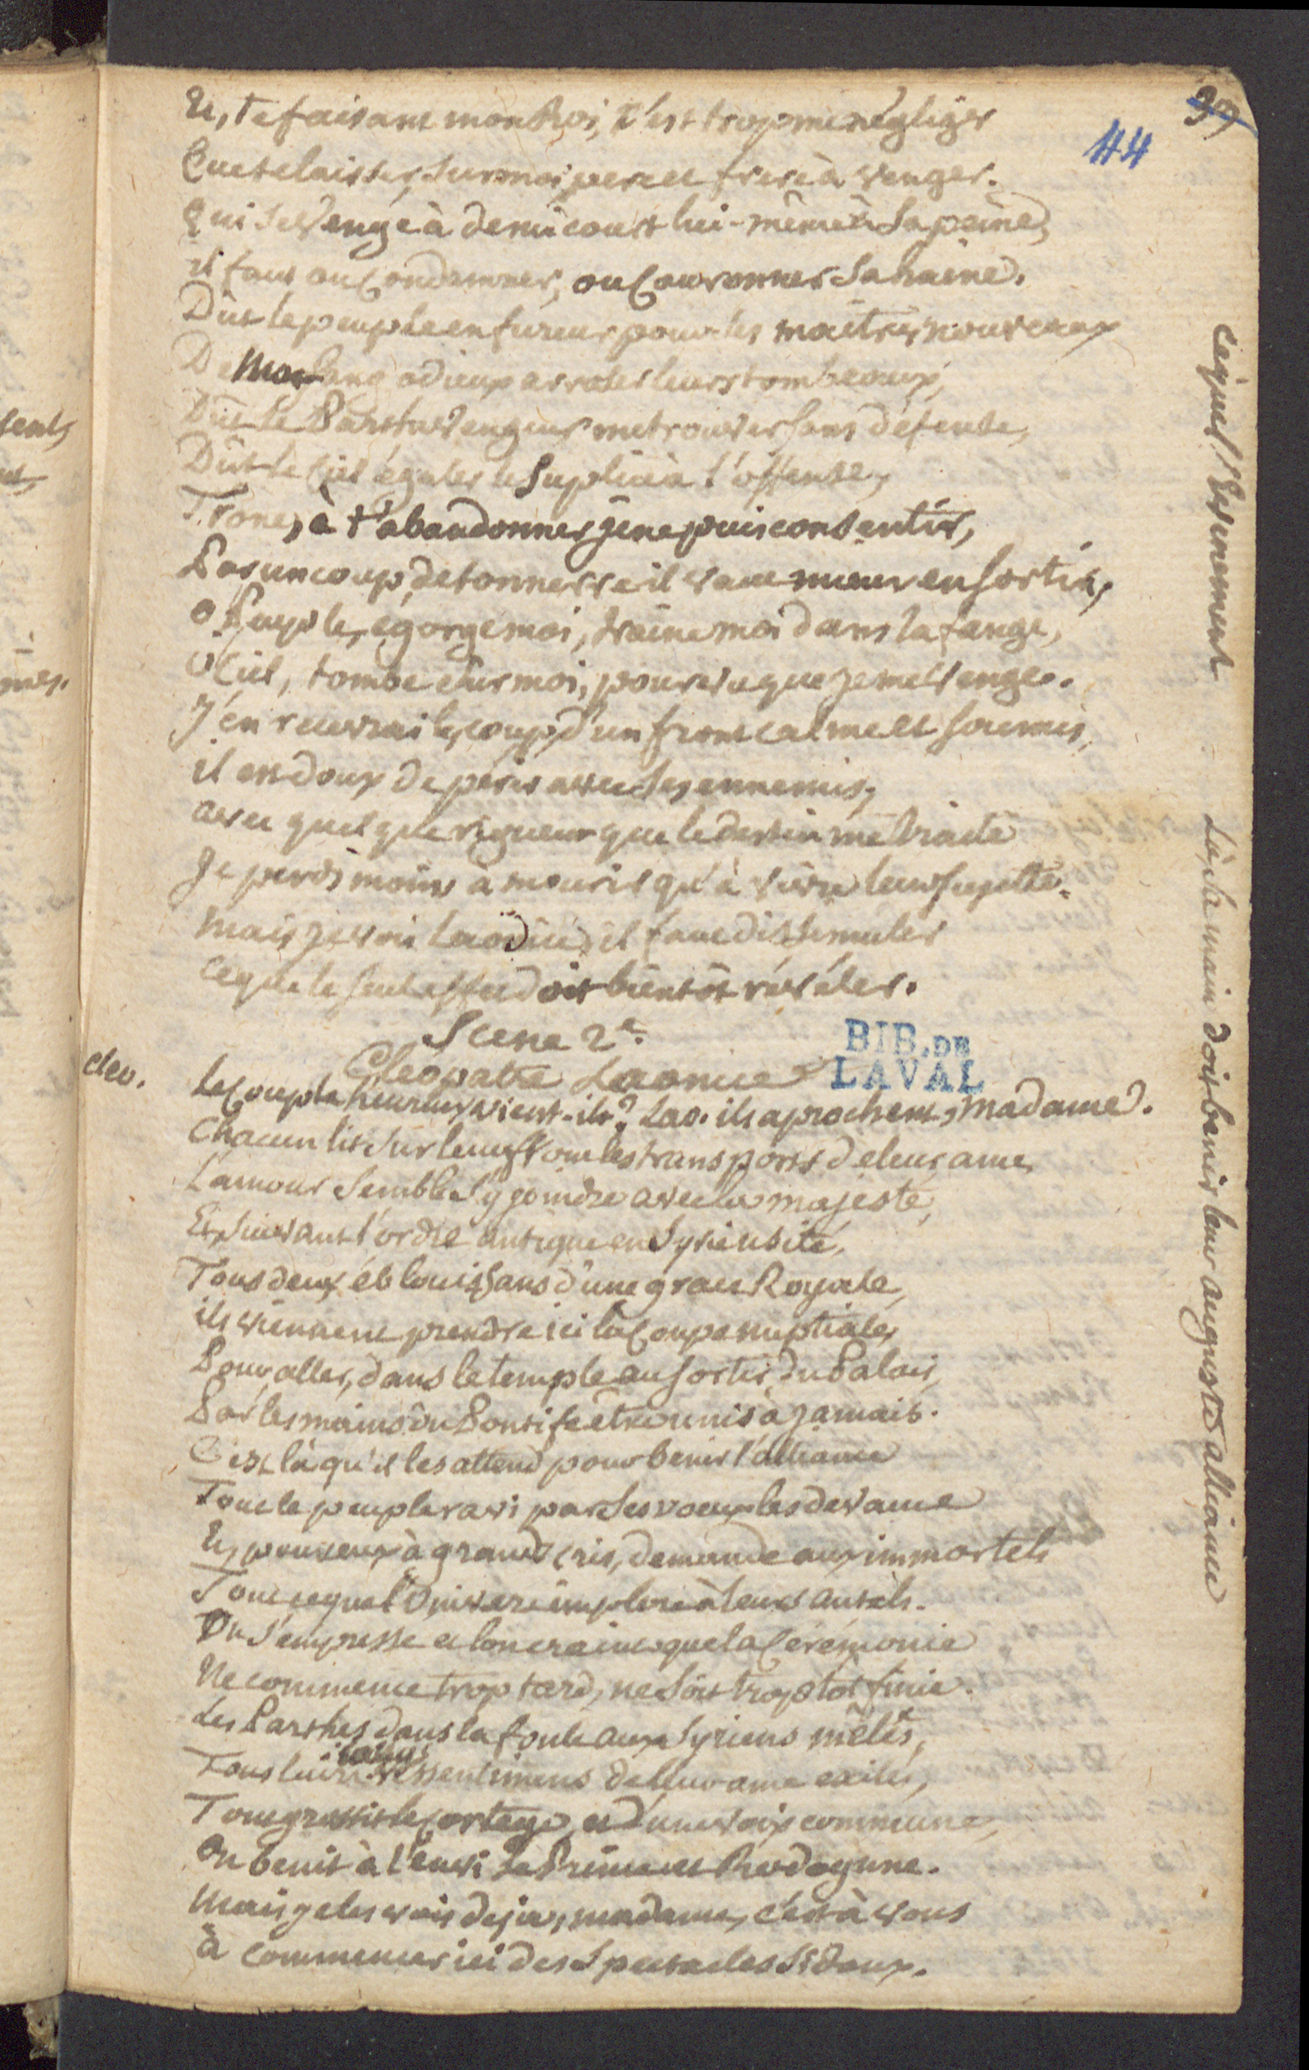 39
44
Et, te faisant mon Roi, c'est trop me négliger
Que te laisser sur moi pere et frere à venger.
Qui se venge à demi court lui-même à sa peine,
il faut ou condamner, ou couronner sa haine.
Dût le peuple en fureur pour les maîtres nouveaux
De mon sang odieux arroser leurs tombeaux,
Dût le Parthe vengeur me trouver sans défense,
Dût le Ciel égaler le suplice à l'offense,
Trone, à t'abandonner je ne puis consentir,
Par un coup de tonnerre il vaut mieux en sortir,
O Peuple, égorge moi, traine moi dans la fange,
O Ciel, tombe sur moi, pourvu que je me venge.
J'en recevrai le coup d'un front calme et soumis,
il est doux de périr avec ses ennemis,
avec quelque rigueur que le destin me traite
Je perds moins à mourir qu'à vivre leur sujette.
mais je voi Laonice, il faut dissimuler
ce que le seul effet doit bientôt révéler.
Scene 2e.
Cleopatre Laonice
BIB. DE
LAVAL
cleo. Le couple heureux vient-il? Lao. ils aprochent, madame.
Chacun lit sur leur front les transports de leur ame,
L'amour semble s'y joindre avec la majesté,
Et, suivant l'ordre antique en Syrie usité,
Tous deux éblouissans d'une grace Royale,
ils viennent prendre ici la coupe nuptiale,
Pour aller, dans le temple au sortir du Palais,
Par les mains du Pontife être unis à jamais.
C'est là qu'il les attend pour benir l'alliance
Tout le peuple ravi par ses voeux les devance
Et, pour eux à grands cris, demande aux immortels
Tout ce que l'Univers implore à leurs autels.
On s'empresse et l'on craint que la Cérémonie
Ne commence trop tard, ne soit trop tot finie.
Les Parthes dans la foule aux Syriens mêlés,
Tous leurs ressentimens de leur ame exilés,
Tout grossit le cortege, et d'une voix commune,
On benit à l'envi le Prince et Rodogune.
Mais je les vois deja, madame, c'est à vous
à commencer ici des spectacles si doux.
Là, sa main doit benir leur auguste alliance